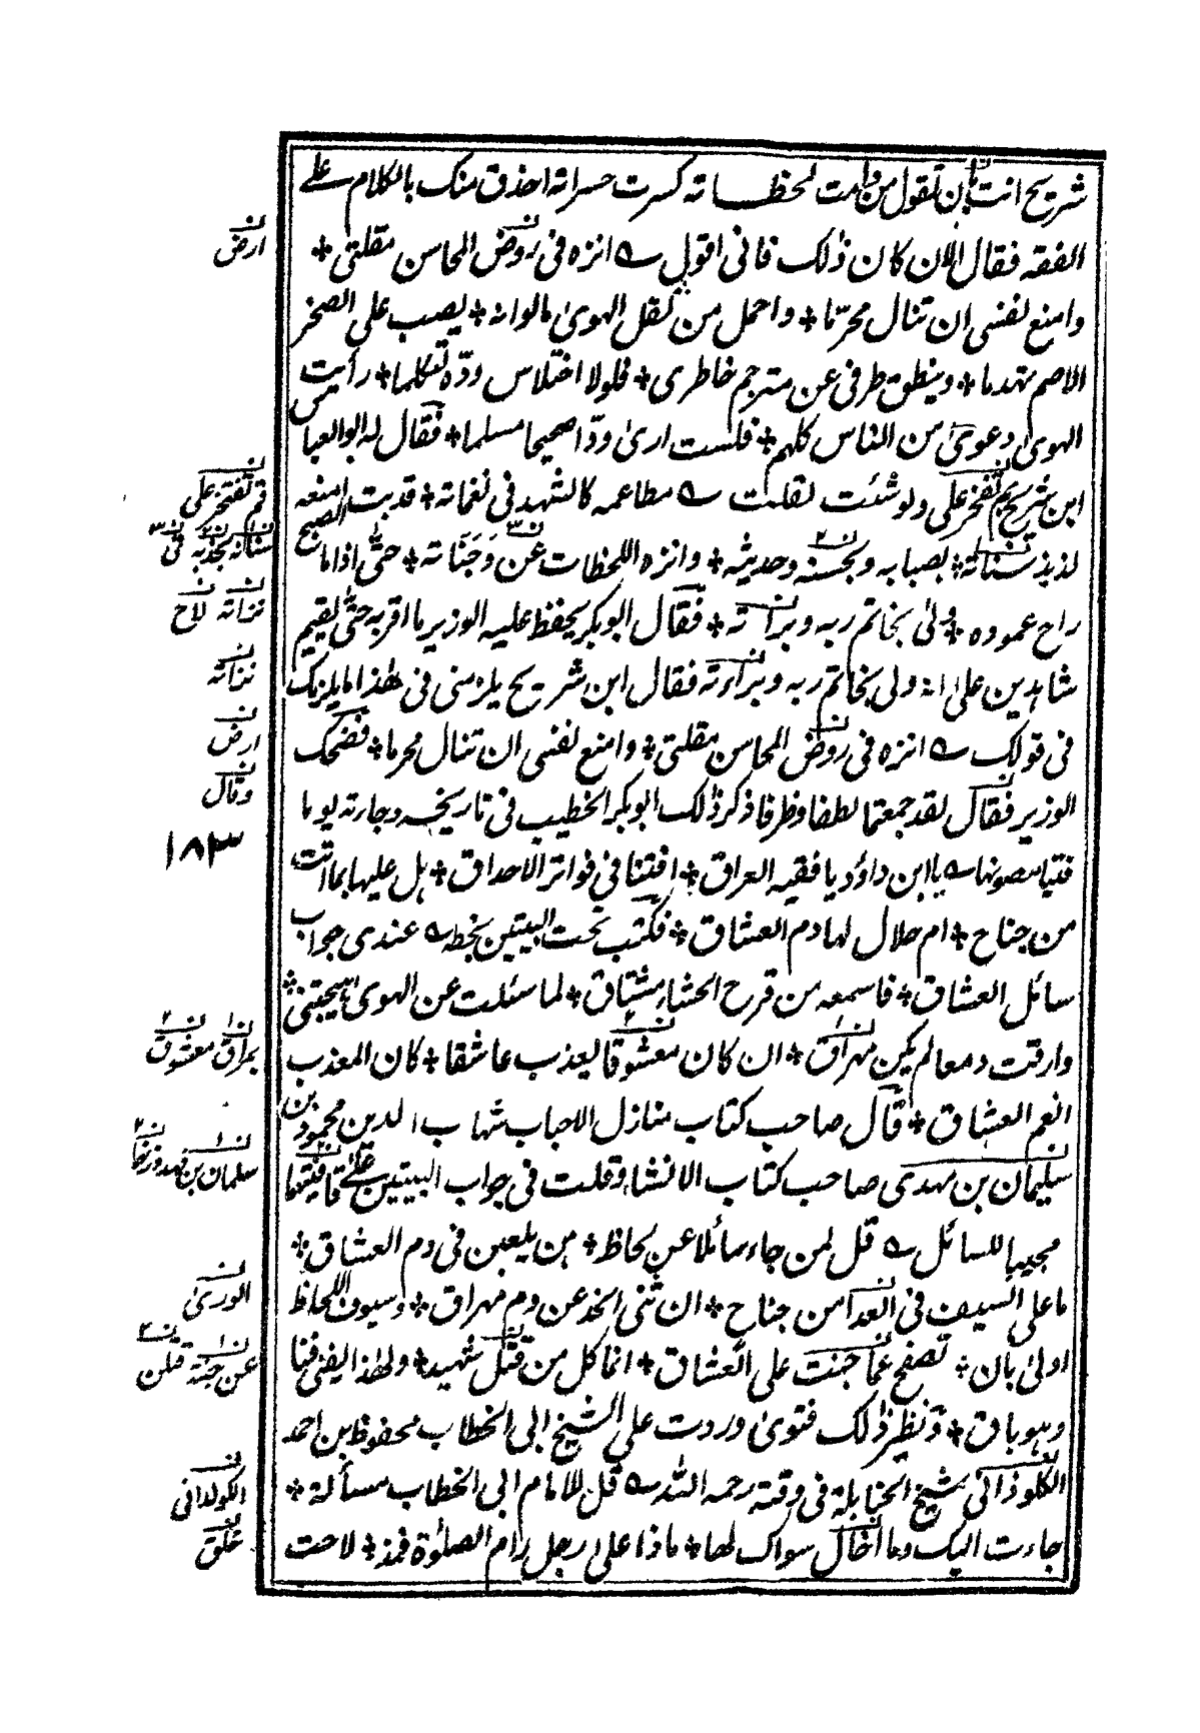 شريح انت بان تقول من دامت لحظاته كسرت حسراته احذق منك بالكلام على
الفقه فقال الان كان ذلك فانى اقول ے انزه فى روض المحاسن مقلتى *
وامنع نفسى ان تنال محرّما * واحمل من ثقل الهوىٰ مالوانه * يصب على الصخر
الاصم تهدما * وينطق طرفى عن مترجم خاطرى * فلولا اختلاس ودّه لتكلما * رأيت
الهوىٰ دعوىٰ من الناس كلهم * فلست ارىٰ ودّا صحيحا مسلما * فقال له ابو العباس
ابن شريح بم تفخر على ولو شئت لقلت ے مطاعمه كالشهد فى نغماته * قد بت امنعه
لذيذ سناته * بصبابه وبحسنه وحديثه * وانزه اللحظات عن وجناته * حتىٰ اذا ما الصبح
راح عموده * ولىٰ بخاتم ربه وبراته * فقال ابو بكر يحفظ عليه الوزير ما اقر به حتىٰ يقيم
شاهدين على انه ولى بخاتم ربه وبراءته فقال ابن شريح يلزمنى فى هٰذا ما يلزمك
فى قولك ے انزه فى روض المحاسن مقلتى * وامنع نفسى ان تنال محرما * فضحك
الوزير فقال لقد جمعتما لطفا وظرفا ذكر ذٰلك ابو بكر الخطيب فى تاريخه وجاءته يوما
فتيا مضمونها ے يا ابن داؤد يا فقيه العراق * افتنا فى فواتر الاحداق * هل عليها بما اتت
من جناح * ام حلال لها دم العشاق * فكتب تحت البيتين بخطه ے عندى جواب
سائل العشاق * فاسمعه من قرح الحشاء مشتاق * لما سئلت عن الهوىٰ هيجتنى *
وارقت دمعا لم يكن مهراق * ان كان معشوقا يعذب عاشقا * كان المعذب
انعم العشاق * قال صاحب كتاب منازل الاحباب شهاب الدين محمود بن
سليمان بن مهدى صاحب كتاب الانشاء وقلت فى جواب البيتين علىٰ قافيتها
مجيبا للسائل ے قل لمن جاء سائلا عن لحاظ * هن يلعبن فى دم العشاق *
ما على السيف فى العدا من جناح * ان ثنى الخد عن دم مهراق * وسيوف اللحاظ
اولىٰ بان * تصفح عما جنت على العشاق * انما كل من قتل شهيد * ولهٰذا يفنى فنا
وهو باق * ونظير ذٰلك فتوىٰ وردت على الشيخ ابى الخطاب محفوظ بن احمد
الكلوذانى شيخ الحنابلة فى وقته رحمه الله ے قل للامام ابى الخطاب مسألة *
جاءت اليك وما اخال سواك لها * ماذا علىٰ رجل رام الصلوٰة فمذ * لاحت
ارض
قم تفتخر على
سناته يجذبه فى
نزاته لاح
نزاته
ارض
وقال
١٨٣
بمراق معشوق
سلمان بن فهد وزنها
الورىٰ
عن جنة قتلن
الكولدانى
علق